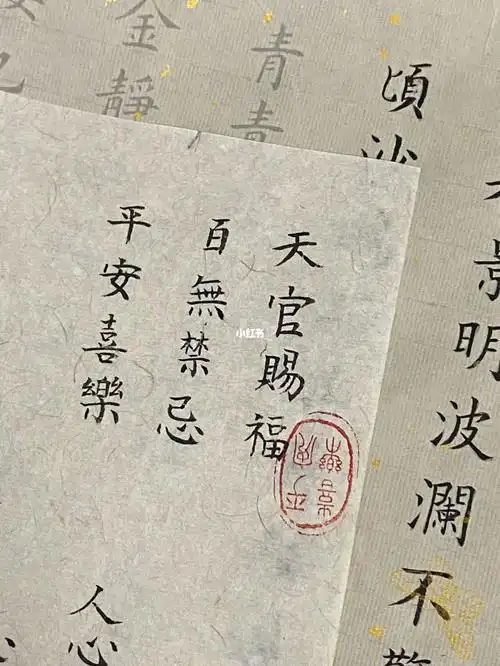 景明
波瀾不
頃沙
青青
金靜
天官賜福
百無禁忌
平安喜樂
人心
小红书